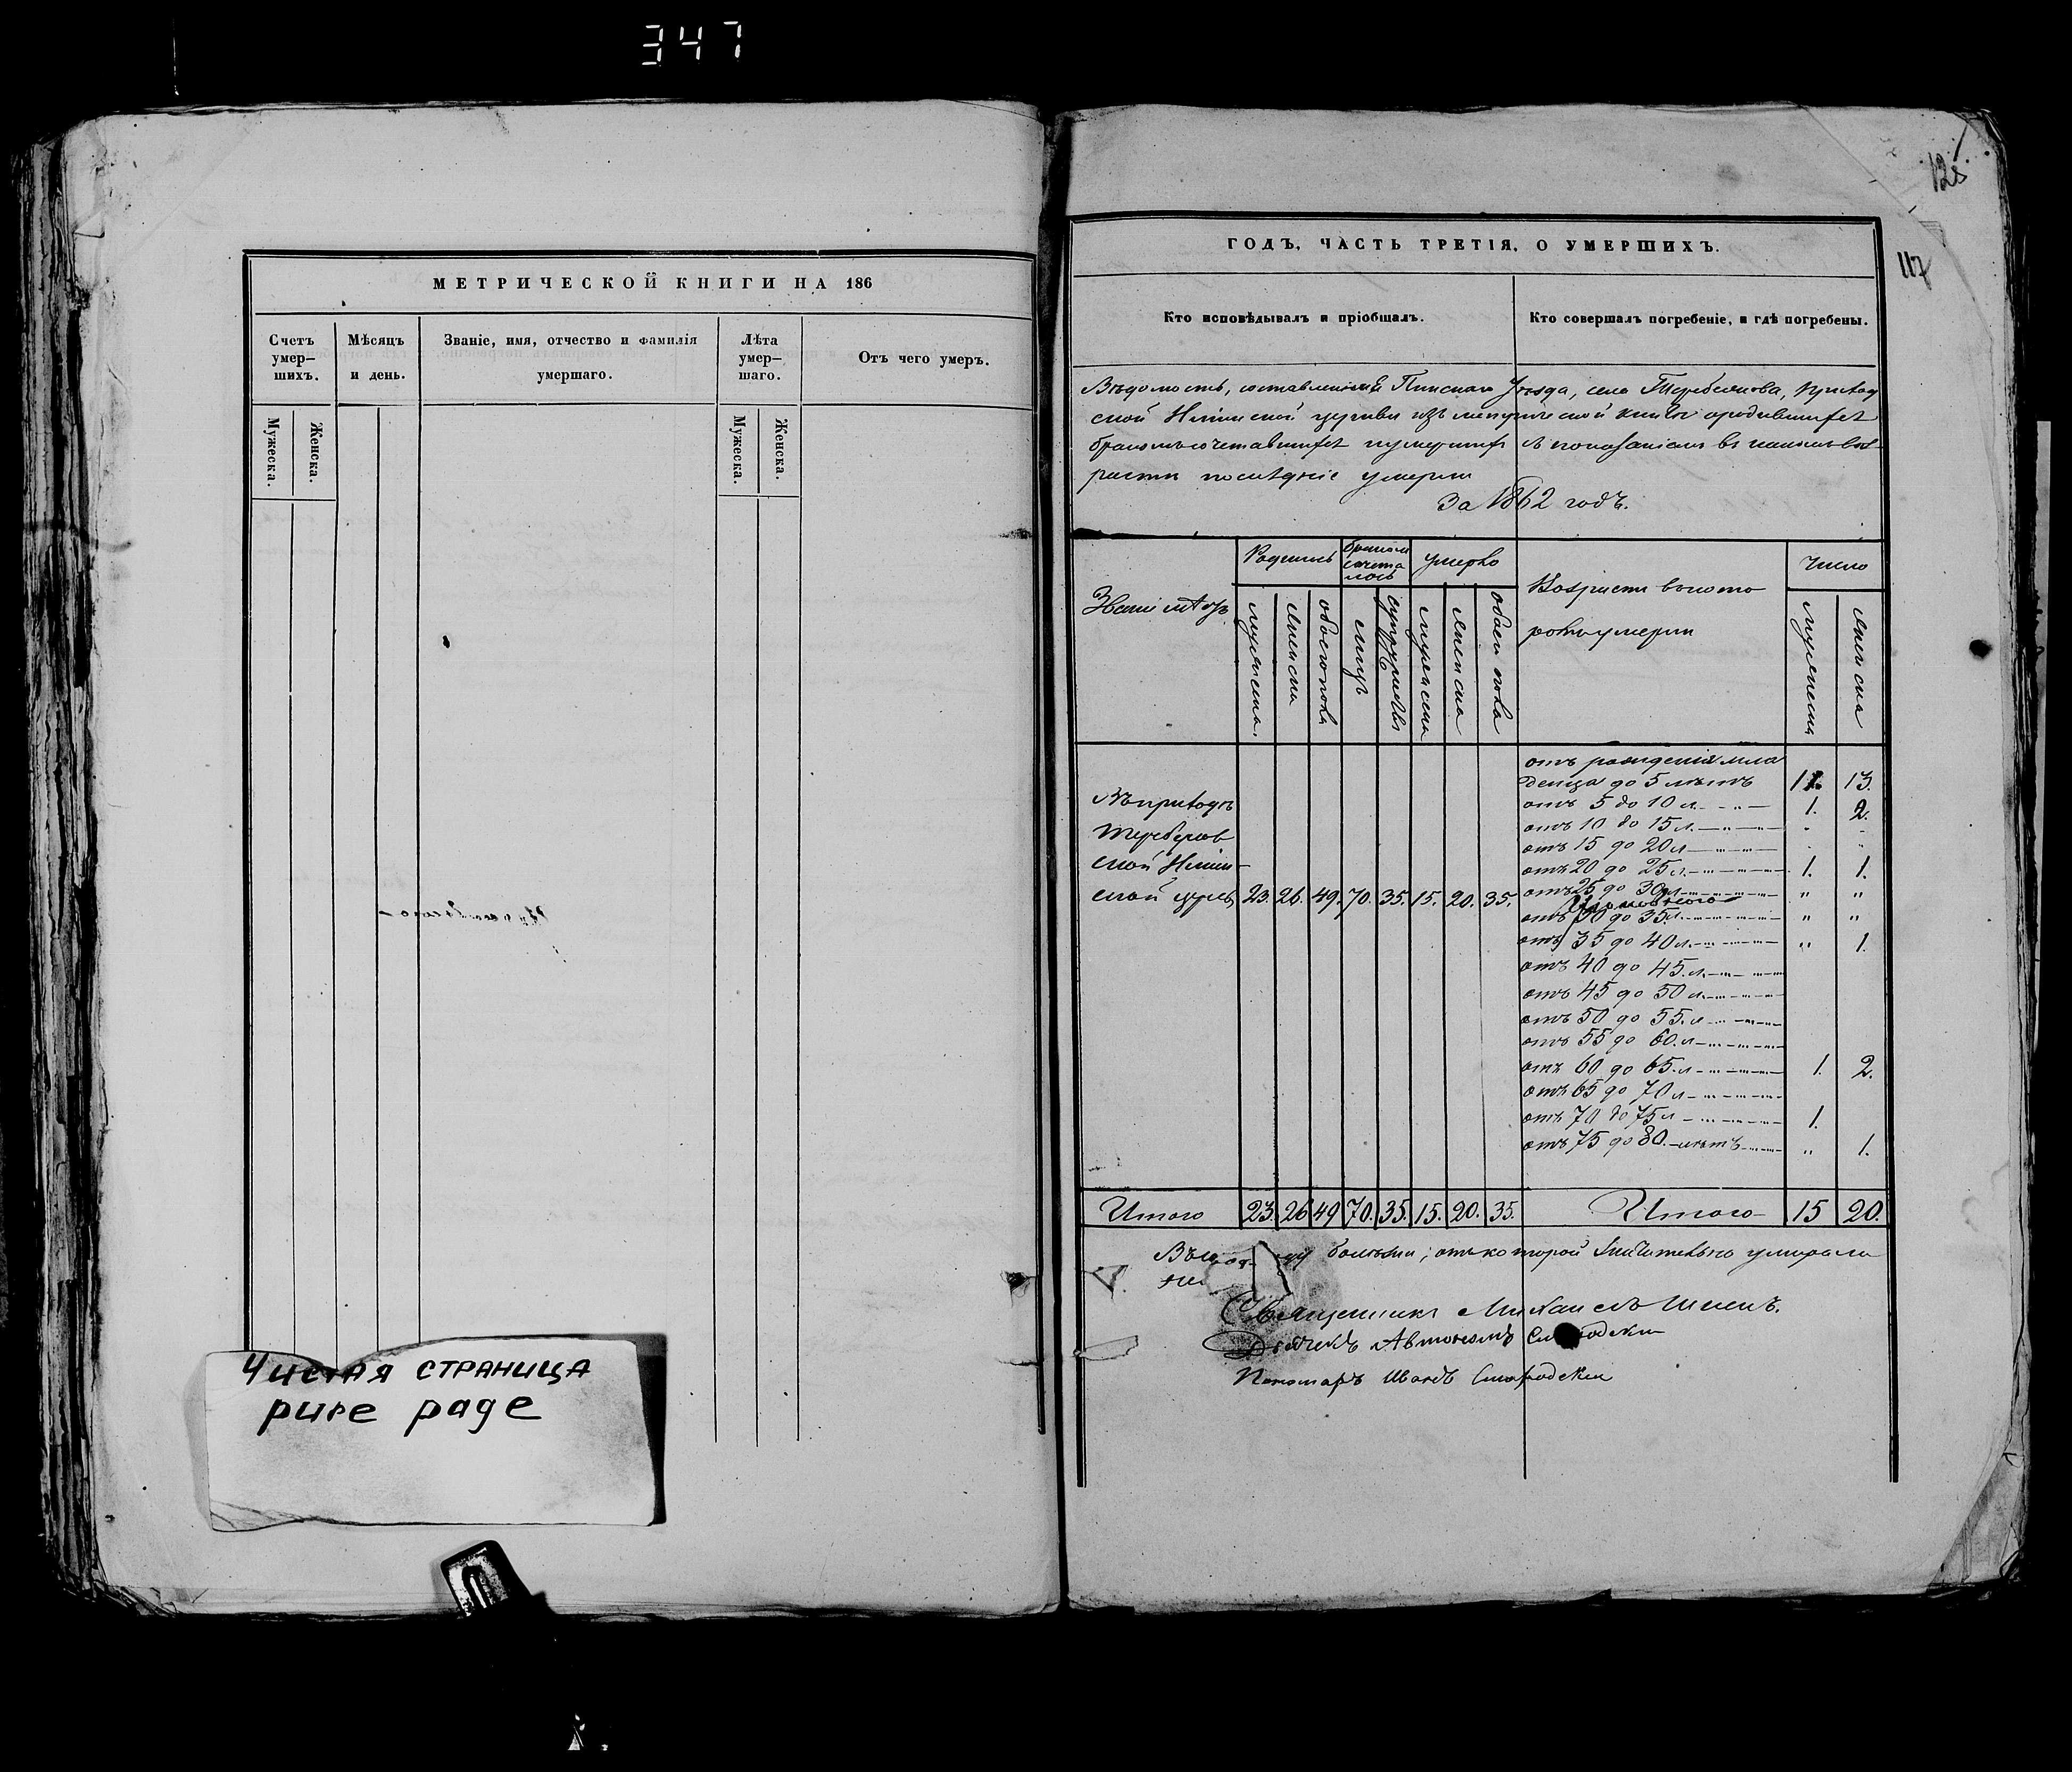 347
МЕТРИЧЕСКОЙ КНИГИ НА 186
Счетъ умер-шихъ.
Мѣсяцъ и день.
Званіе, имя, отчество и фамилія умершаго.
Лѣта умер-шаго.
Отъ чего умеръ.
Мужеска.
Женска.
Мужеска.
Женска.
Чистая страница
pure page
128
117
ГОДЪ, ЧАСТЬ ТРЕТІЯ, О УМЕРШИХЪ.
Кто исповѣдывалъ и пріобщалъ.
Кто совершалъ погребеніе, и гдѣ погребены.
Вѣдомость, составленная Пинскаго Уѣзда, села Теребежова, Приход
ской церкви изъ метрической книги о родившихся
бракомъ сочетавшихся и умершихъ съ показаніемъ въ какомъ воз-
расти послѣдніе умерли
За 1862 годъ.
Родились
бракомъ сочета лось
умерло
Возрасти въ кото
ромъ умерли
число
мужеска
женска
обоего пола
лицъ
супружествъ
мужеска
женска
обоего пола
мужеска
женска
отъ рожденія мла
денца до 5 лѣтъ 13.
отъ 5 до 10 л. 1. 2.
отъ 10 до 15 л.
отъ 15 до 20 л
отъ 20 до 25 л. 1. 1.
отъ 25 до 30 л. " "
отъ 30 до 35 л. " "
отъ 35 до 40 л. " 1.
отъ 40 до 45 л.
отъ 45 до 50 л.
отъ 50 до 55 л
отъ 55 до 60 л
отъ 60 до 65 л 1. 2.
отъ 65 до 70 л
отъ 70 до 75 л 1.
отъ 75 до 80 лѣтъ " 1.
Въ приходѣ
Теребежов
ской
ской 23. 26. 49. 70. 35. 15. 20. 35.
Итого 23. 26 49 70. 35. 15. 20. 35. Итого 15 20.
болѣзни, отъ которой значительно умирали
Священникъ Михаилъ
Дьячекъ Автономъ
Пономаръ Иванъ Смородски